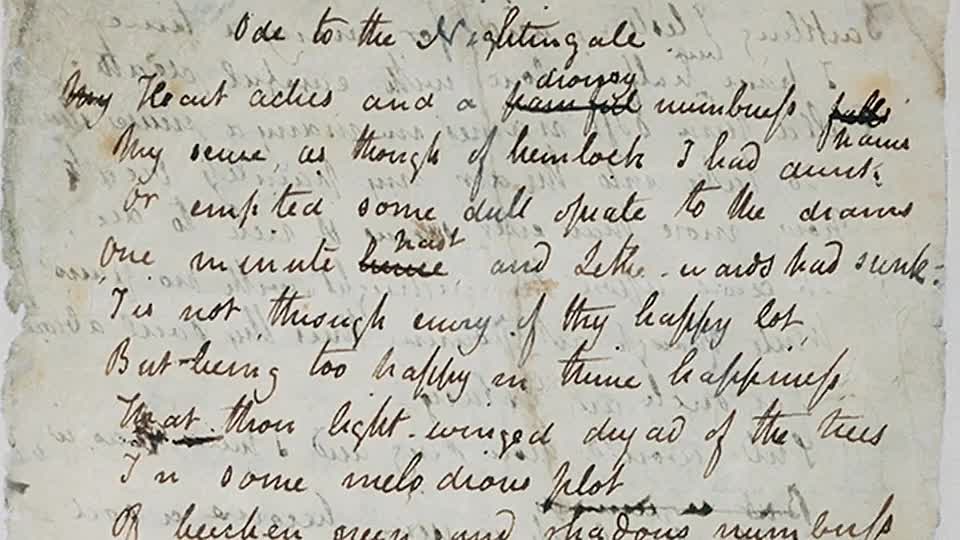 Ode to the Nightingale
My Heart aches and a drowsy painful numbness falls
pains
My sense, as though of hemlock I had drunk
Or emptied some dull opiate to the drains
One minute hence past and Lethe-wards had sunk-
'Tis not through envy of thy happy lot,
But-being too happy in thine happiness
That thou light-winged dryad of the trees
In some melodious plot
Of beechen green and shadows numberless